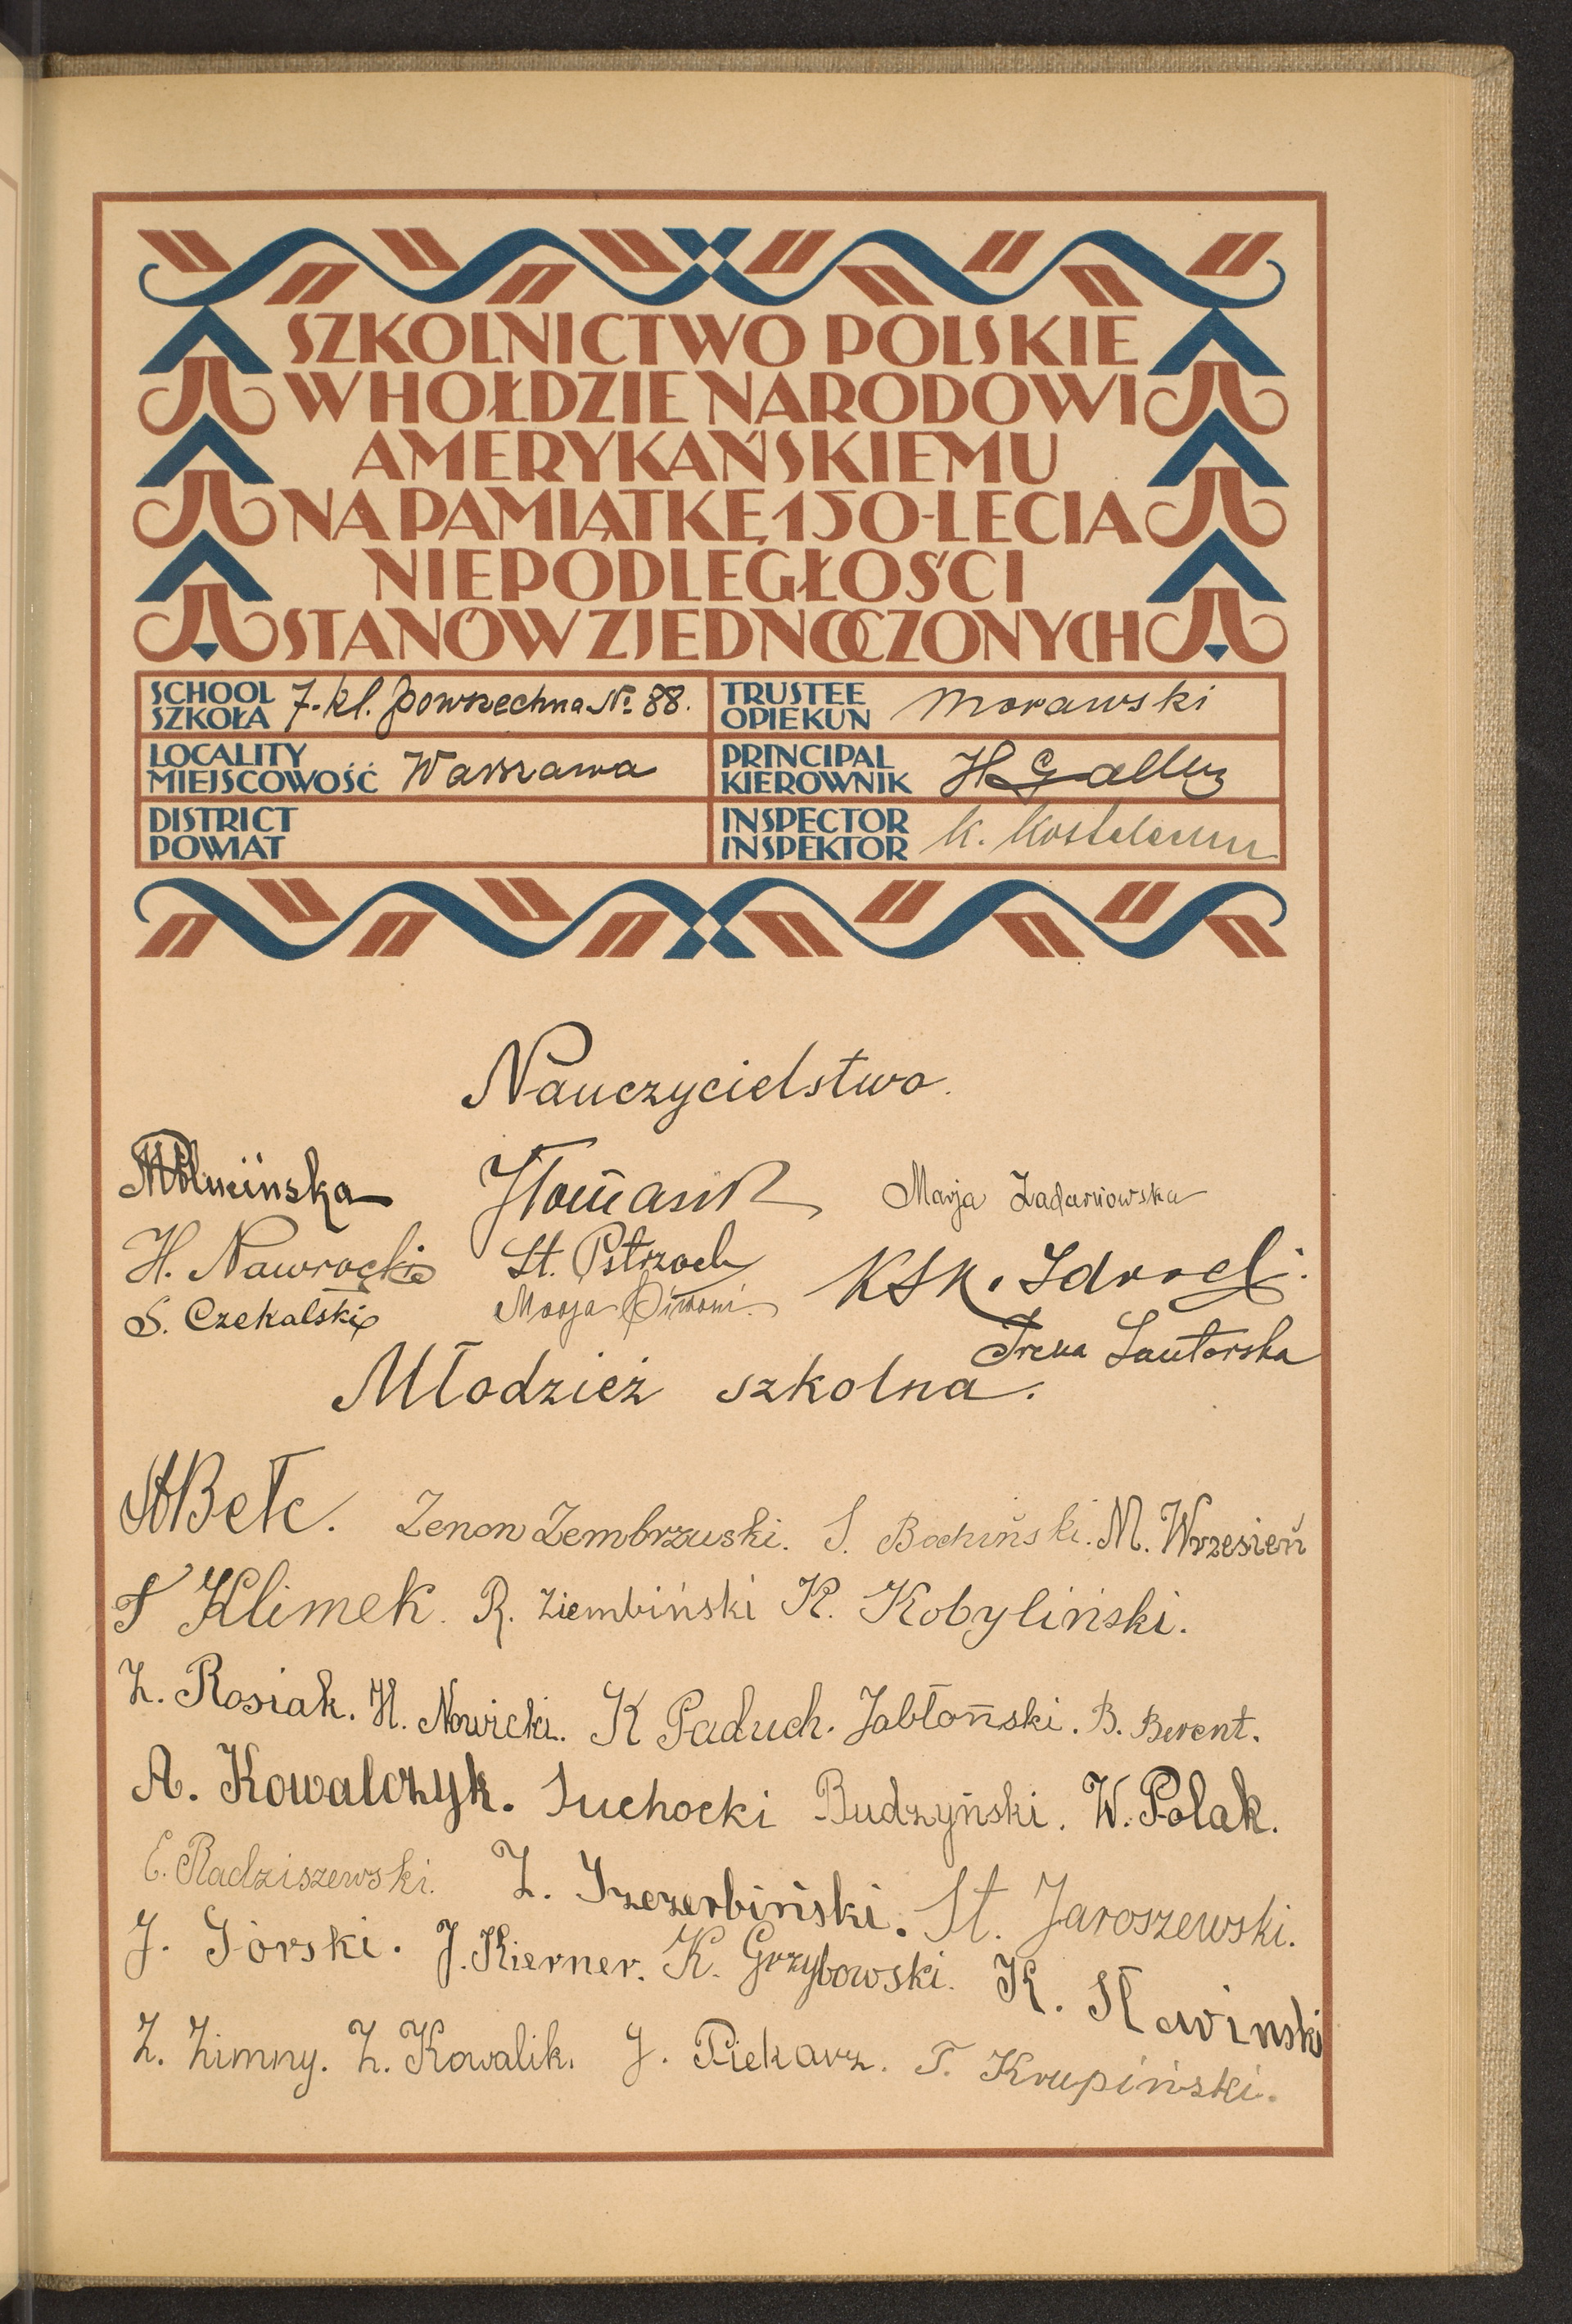 SZKOLNICTWO POLSKIE
W HOŁDZIE NARODOWI
AMERYKAŃSKIEMU
NA PAMIĄTKĘ 150-LECIA
NIEPODLEGŁOŚCI
STANÓW ZJEDNOCZONYCH
SCHOOL SZKOŁA 7-kl. powszechna № 88.
TRUSTEE OPIEKUN Morawski
LOCALITY MIEJSCOWOŚĆ Warszawa
PRINCIPAL KIEROWNIK H
DISTRICT POWIAT
INSPECTOR INSPEKTOR K.
Nauczycielstwo.
Marja
H. Nawrocki St.
S. Czekalski Marja
Irena
Młodzież szkolna.
Bełc. Zenon Zembrzuski. S. Bochiński. M. Wrzesień
F Klimek. R. Ziembiński K. Kobyliński.
Z. Rosiak. H. Nowicki. K Paduch. Jabłoński. B. Berent.
A. Kowalczyk. Suchocki Budzyński. W. Polak.
E. Radziszewski. Z. Szczerbiński. St. Jaroszewski.
J. Górski. J. Kierner. K. Grzybowski. K. Sławinski
Z. Zimny. Z. Kowalik. J. Piekarz. T. Krupiński.